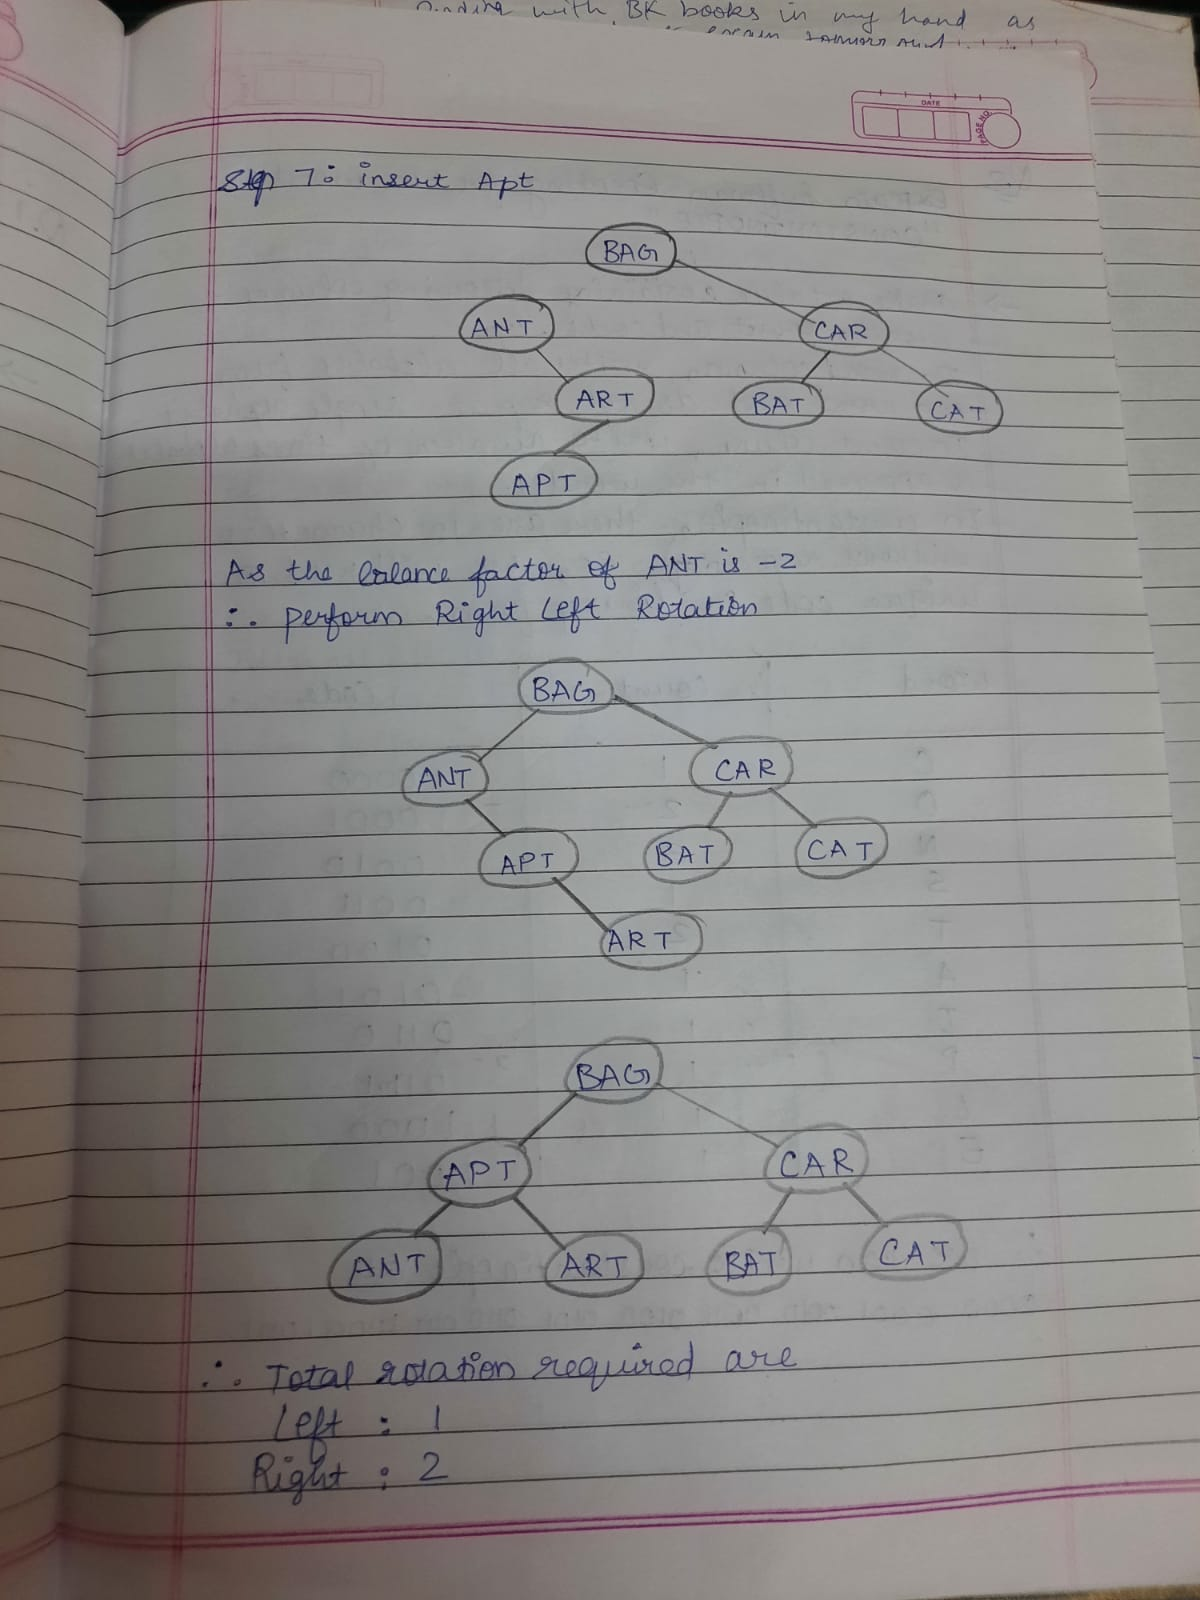 with BK books in my hand as
DATE
PAGE NO
Step 7: insert Apt
BAG
ANT CAR
ART BAT CAT
APT
As the balance factor of ANT is -2
∴ perform Right Left Rotation
BAG
ANT CAR
APT BAT CAT
ART
BAG
APT CAR
ANT ART BAT CAT
∴ Total rotation required are
Left : 1
Right : 2